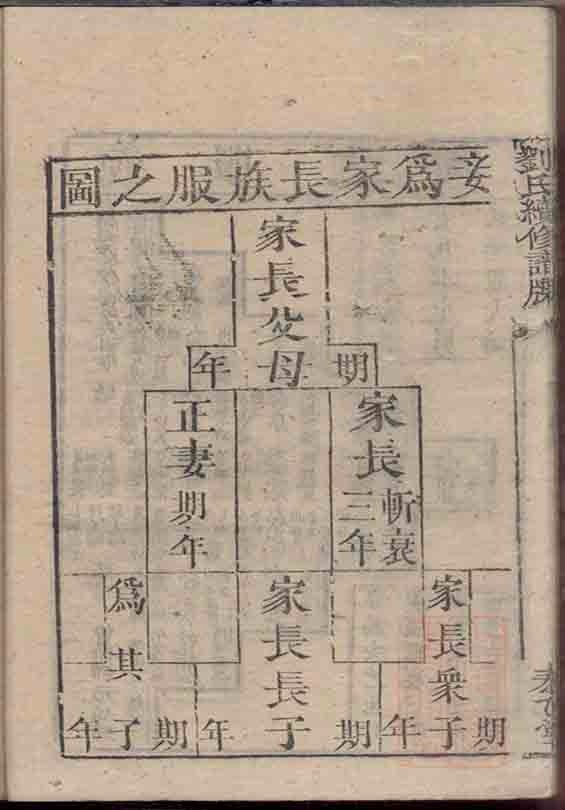 劉氏續修譜牒
妾為家長族服之圖
家長父母
期年
家長
斬衰
三年
正妻
期年
家長衆子
期年
家長長子
期年
為其子
期年